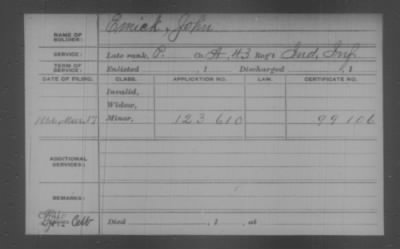 NAME OF SOLDIER: Emick, John
SERVICE: Late rank, P. Co. A, 43 Reg't Ind. Inf.
TERM OF SERVICE: Enlisted , 1 Discharged , 1
DATE OF FILING. CLASS. APPLICATION NO. LAW. CERTIFICATE NO.
Invalid,
Widow,
Minor, 123 610 99 106
ADDITIONAL SERVICES:
REMARKS:
Died , 1 , at